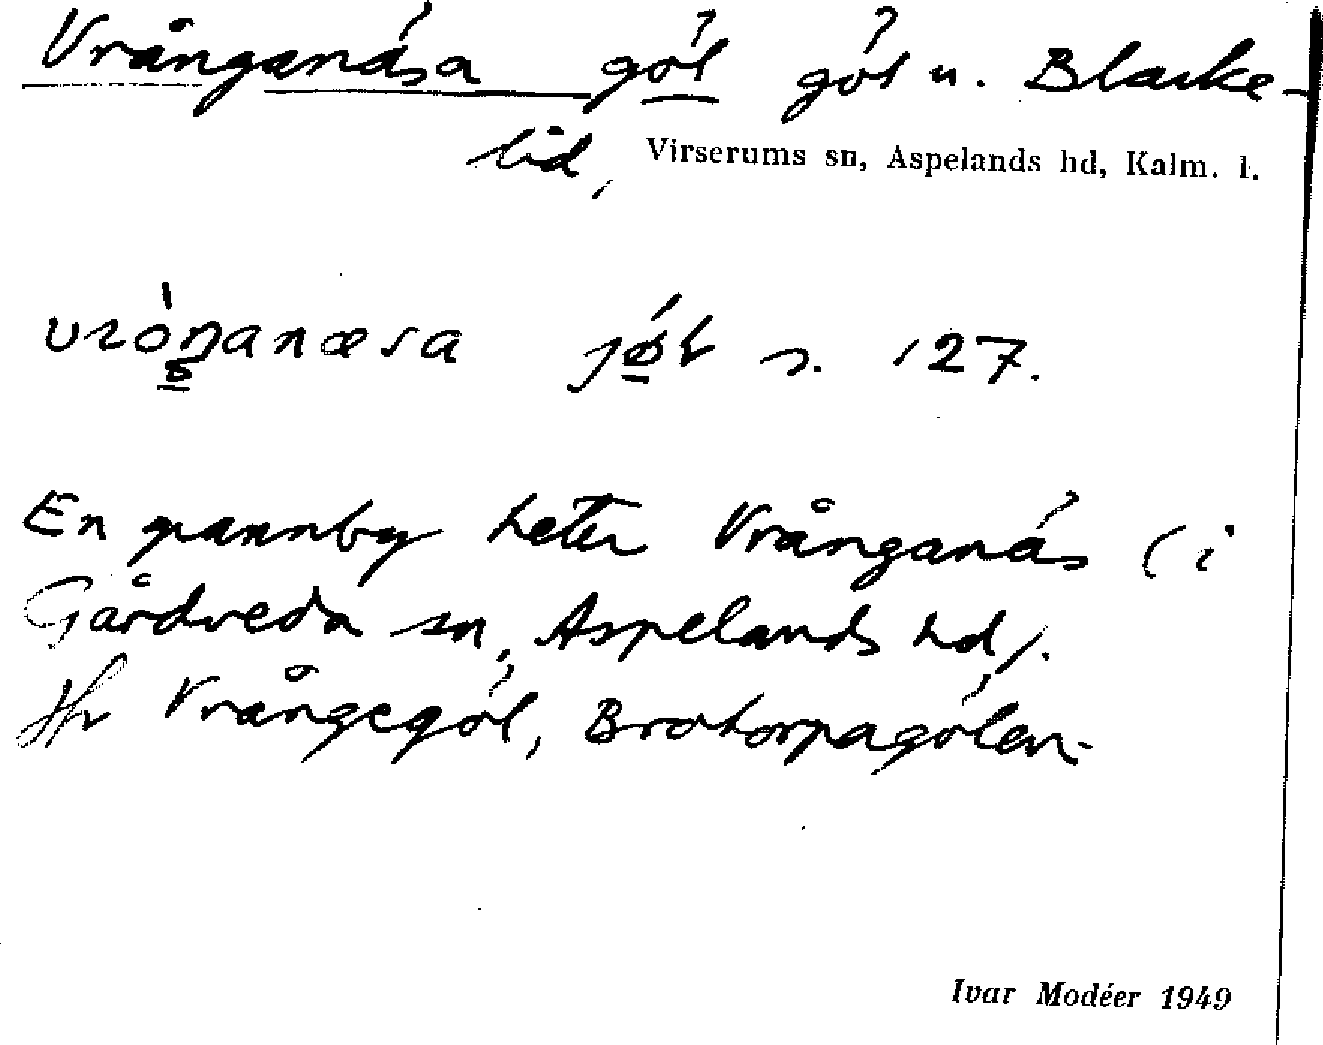 Vrånganäsa göl göl u. Blacke-
lid, Virserums sn, Aspelands hd, Kalm. l.
s. 127.
En grannby heter Vrånganäs (i
Gårdveda sn, Aspelands hd).
Jfr Vrångegöl, Brotorpagölen.
Ivar Modéer 1949